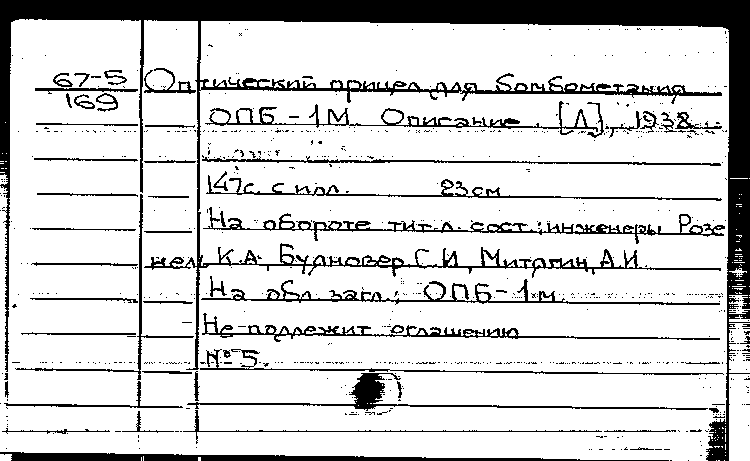 67-5 Оптический прицел для бомбометания
169
ОПБ-1М. Описание. [Л], 1938.
147с. с илл. 23см
На обороте тит.л. сост.: инженеры Розе
нель К.А., Митягин, А.И.
На обл. загл.: ОПБ-1м
Не подлежит оглашению
№ 5.